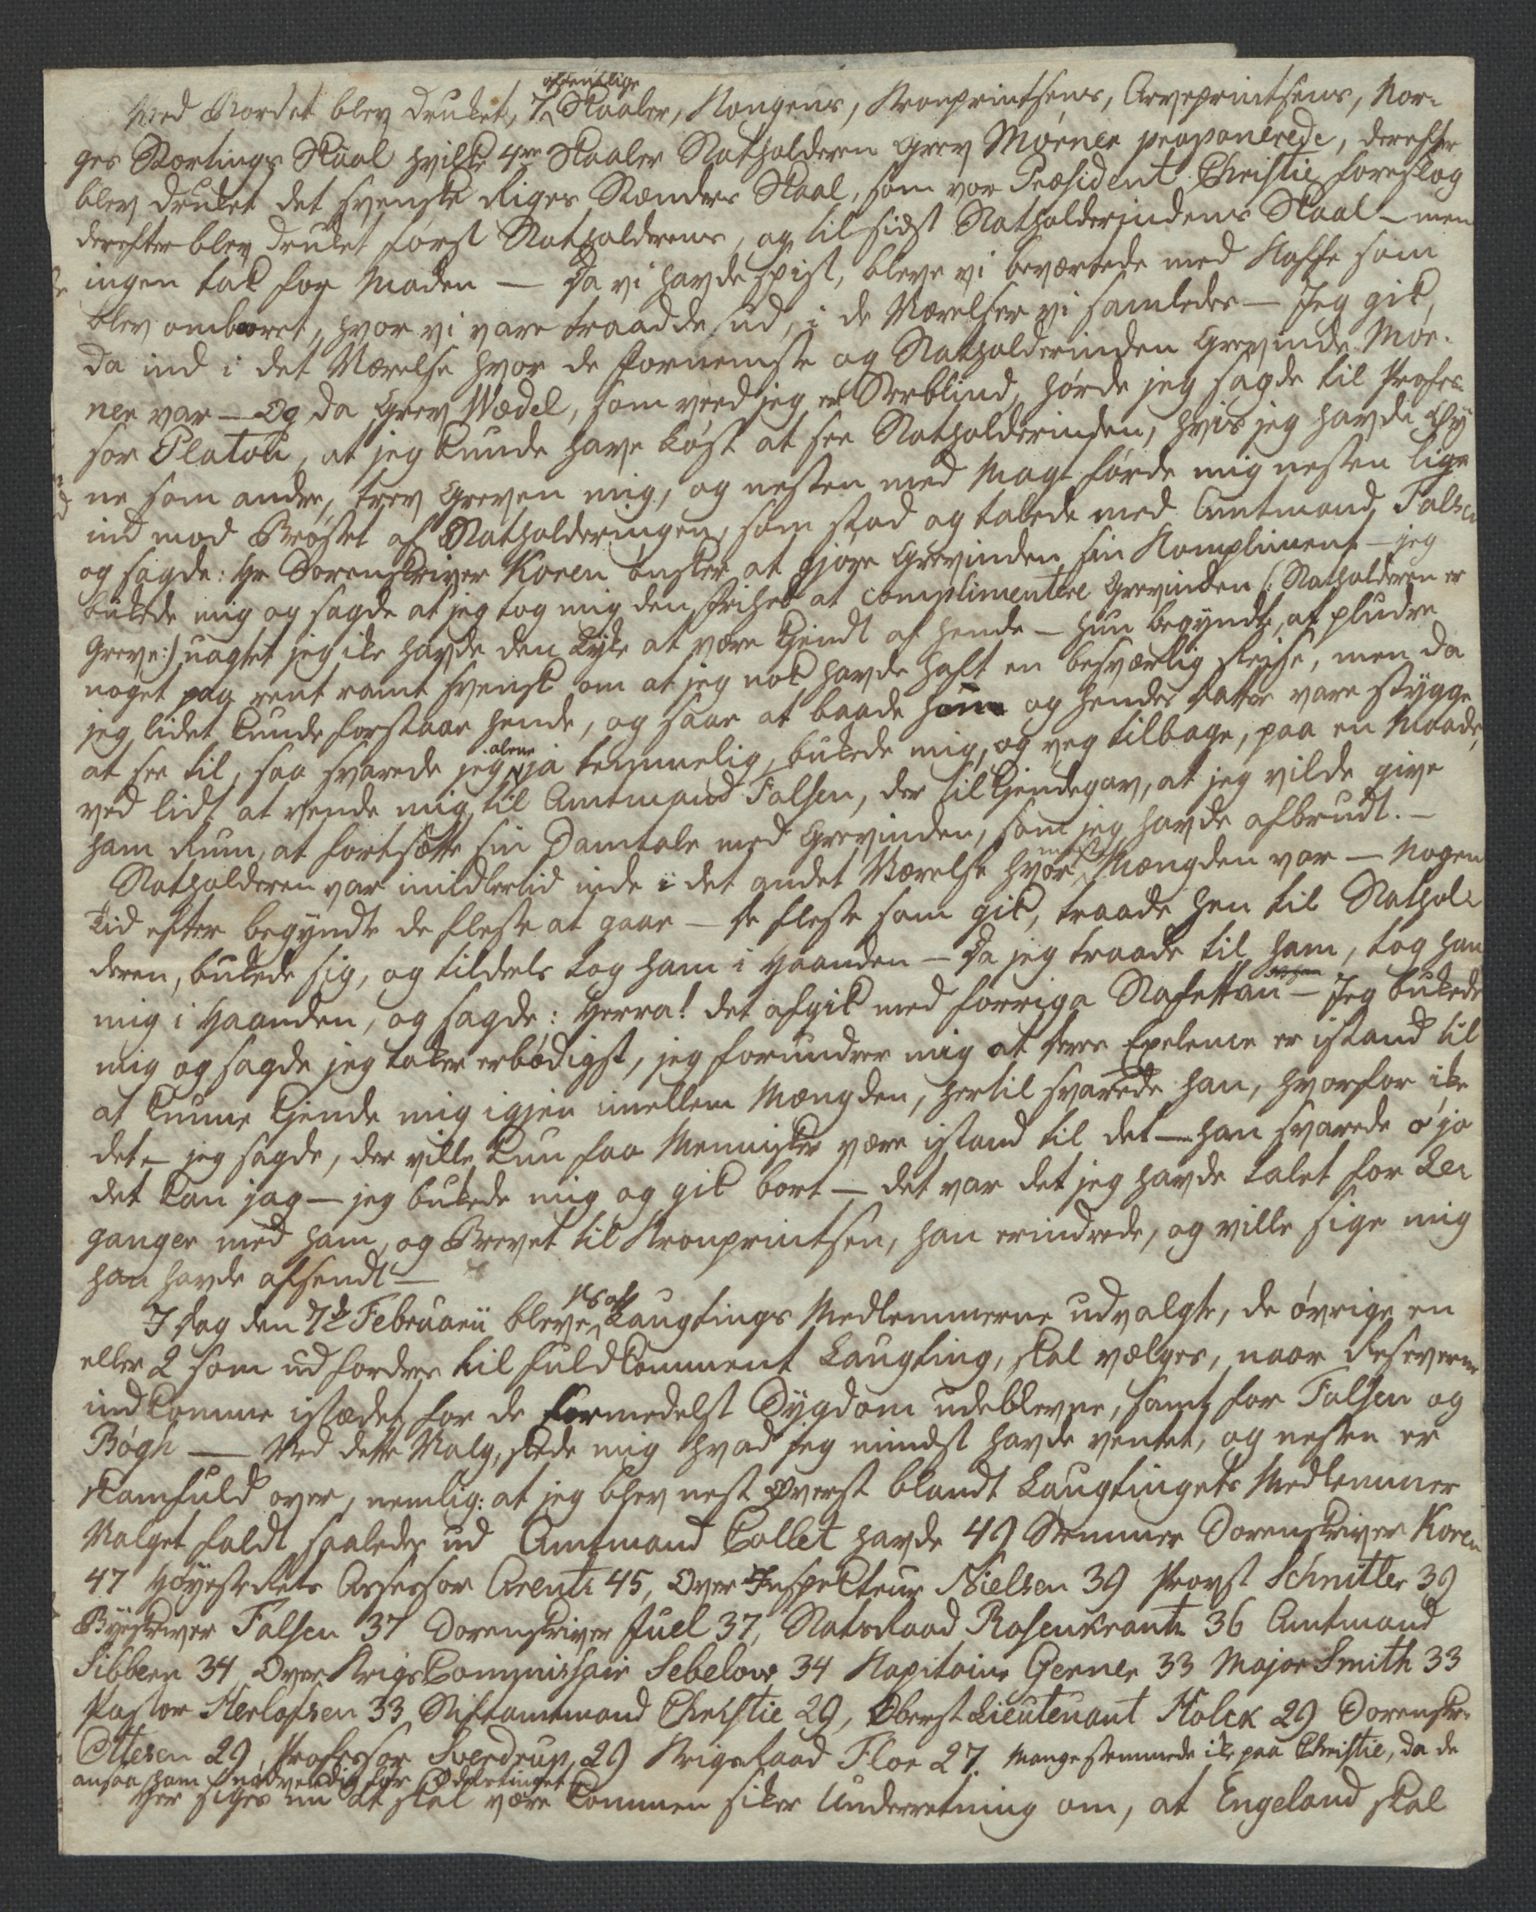 Ved Bordet blev druket, 7 offentlige Skaaler, Kongens, Kronprintsens, Arveprintsens, Nor-
ges Stortings Skaal hvilke 4re Skaaler Statholderen Grev Mørner proponerede, derefter
blev druket det svenske Riges Stænders Skaal, som vor Præsident Christie foreslog
derefter blev druket først Statholderens, og til sidst Statholderindens Skaal – men
ingen tak for Maden — Da vi havde spist, bleve vi beværtede med Kaffe som
blev ombaaret, hvor vi vare traadde ud, i de Værelser vi samledes — Jeg gik,
da ind i det Værelse hvor de fornemste og Statholderinden Grevinde Mør-
ner var — Og da Grev Wedel, som veed jeg er Stærblind, hørde jeg sagde til Profes-
sor Platou, at jeg kunde have Løst at see Statholderinden, hvis jeg havde Øy
ne som andre, trev Greven mig, og nesten med Magt førde mig nesten lige
ind mod Brøstet af Statholderingen, som stod og talede med Amtmand Falsen
og sagde: Hr Sorenskriver Koren ønsker at gjøre Grevinden sin Kompliment – jeg
bukede mig og sagde at jeg tog mig den Frihed at complimentere Grevinden (: Statholderen er
Greve:) uagtet jeg ike havde den Lyke at være kjendt af hende — hun begyndte, at pludre
noget paa rent ramt svensk om at jeg nok havde haft en besværlig Reise, men da
jeg lidet kunde forstaae hende, og saae at baade hun og hendes Datter vare stygge
at see til, saa svarede jeg alene ja temmelig, bukede mig, og veg tilbage, paa en Maade,
ved lidt at vende mig til Amtmand Falsen, der tilkjendegav, at jeg vilde give
ham Rum, at fortsætte sin Samtale med Grevinden, som jeg havde afbrudt. —
Statholderen var imidlertid inde i det andet Værelse hvor Mængden var — Nogen
Tid efter begyndte de fleste at gaae — de fleste som gik, traade hen til Stathol-
deren, bukede sig, og tildels tog ham i Haanden — Da jeg traade til ham, tog han
mig i Haanden, og sagde: Herra! det afgik med forriga Stafettan — Jeg bukede
mig og sagde jeg taker erbødigst, jeg forundrer mig at Deres Exelence er istand til
at kunne kjende mig igjen imellem Mængden, hertil svarede han, hvorfor ike
det – jeg sagde, der ville kun faa Mennisker være istand til det — han svarede o ja
det kan jag — jeg bukede mig og gik bort — det var det jeg havde talet for Le-
ganger med ham, og Brevet til Kronprintsen, han erindrede, og ville sige mig
han havde afsendt —
I Dag den 7de Februarii bleve Laugtings Medlemmerne udvalgte, de øvrige en
eller 2 som udfordres til fuldkomment Laugting, skal vælges, naar Reserverne
indkomme istædet for de formedelst Sygdom udeblevne, samt for Falsen og
Bøgh — Ved dette Valg, skede mig hvad jeg mindst havde ventet, og nesten er
skamfuld over, nemlig: at jeg blev nest Øverst blandt Laugtingets Medlemmer
Valget faldt saaledes ud Amtmand Collet havde 49 Stemmer Sorenskriver Koren
47 Høyesterets Assessor Arentz 45, Over Inspekteur Nielsen 39 Provst Schnitler 39
Byeskriver Falsen 37 Sorenskriver Juel 37, Statsraad Rosenkrantz 36 Amtmand
Sibbern 34 Over Krigs Commissair Sebelow 34 Kapitaine Gerner 33 Major Smith 33
Pastor Herlofsen 33 Stiftamtmand Christie 29, Oberst Lieutenant Holck 29 Sorenskr.
Ottesen 29, Professor Sverdrup, 29 Krigsraad Floe 27. Mange stemmede ike paa Christie, da de
ansaa ham nødvendig for Odelstinget –
Her siges nu at skal være kommen siker Underretning om, at Engeland skal